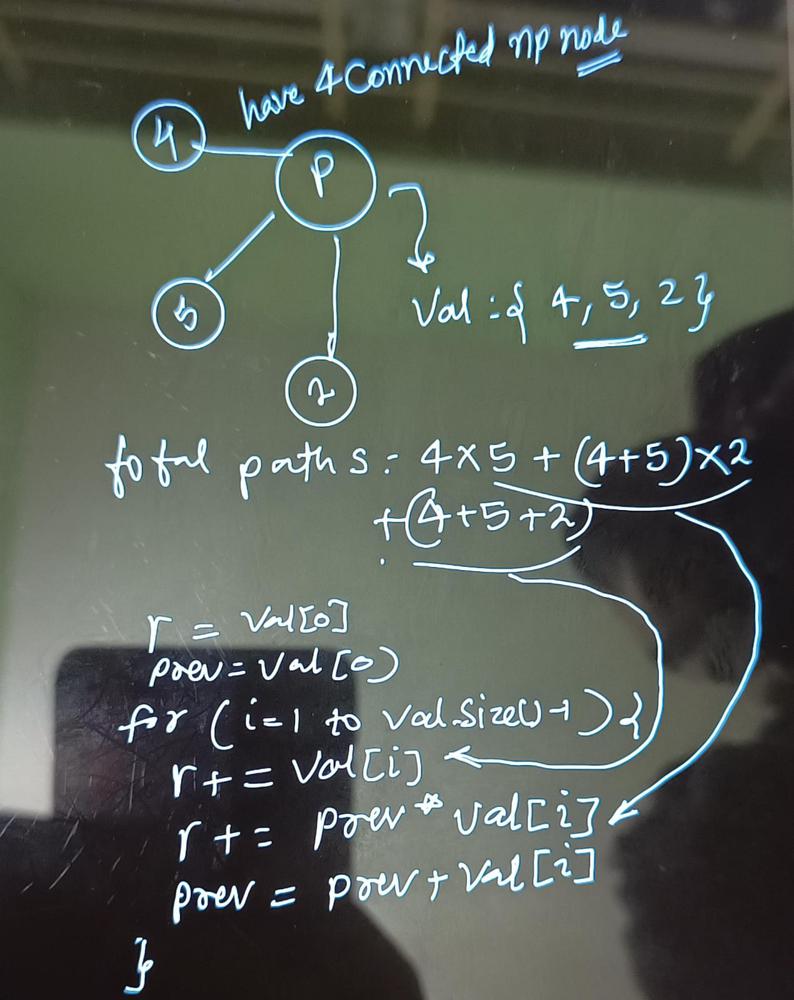 have 4 Connected np node
4
P
5
Val : { 4, 5, 2 }
2
total paths : 4 × 5 + (4+5) × 2
+ (4+5+2)
r = val[0]
prev = val[0)
for (i=1 to val.size()-1) {
r += val[i]
r += prev * val[i]
prev = prev + val[i]
}